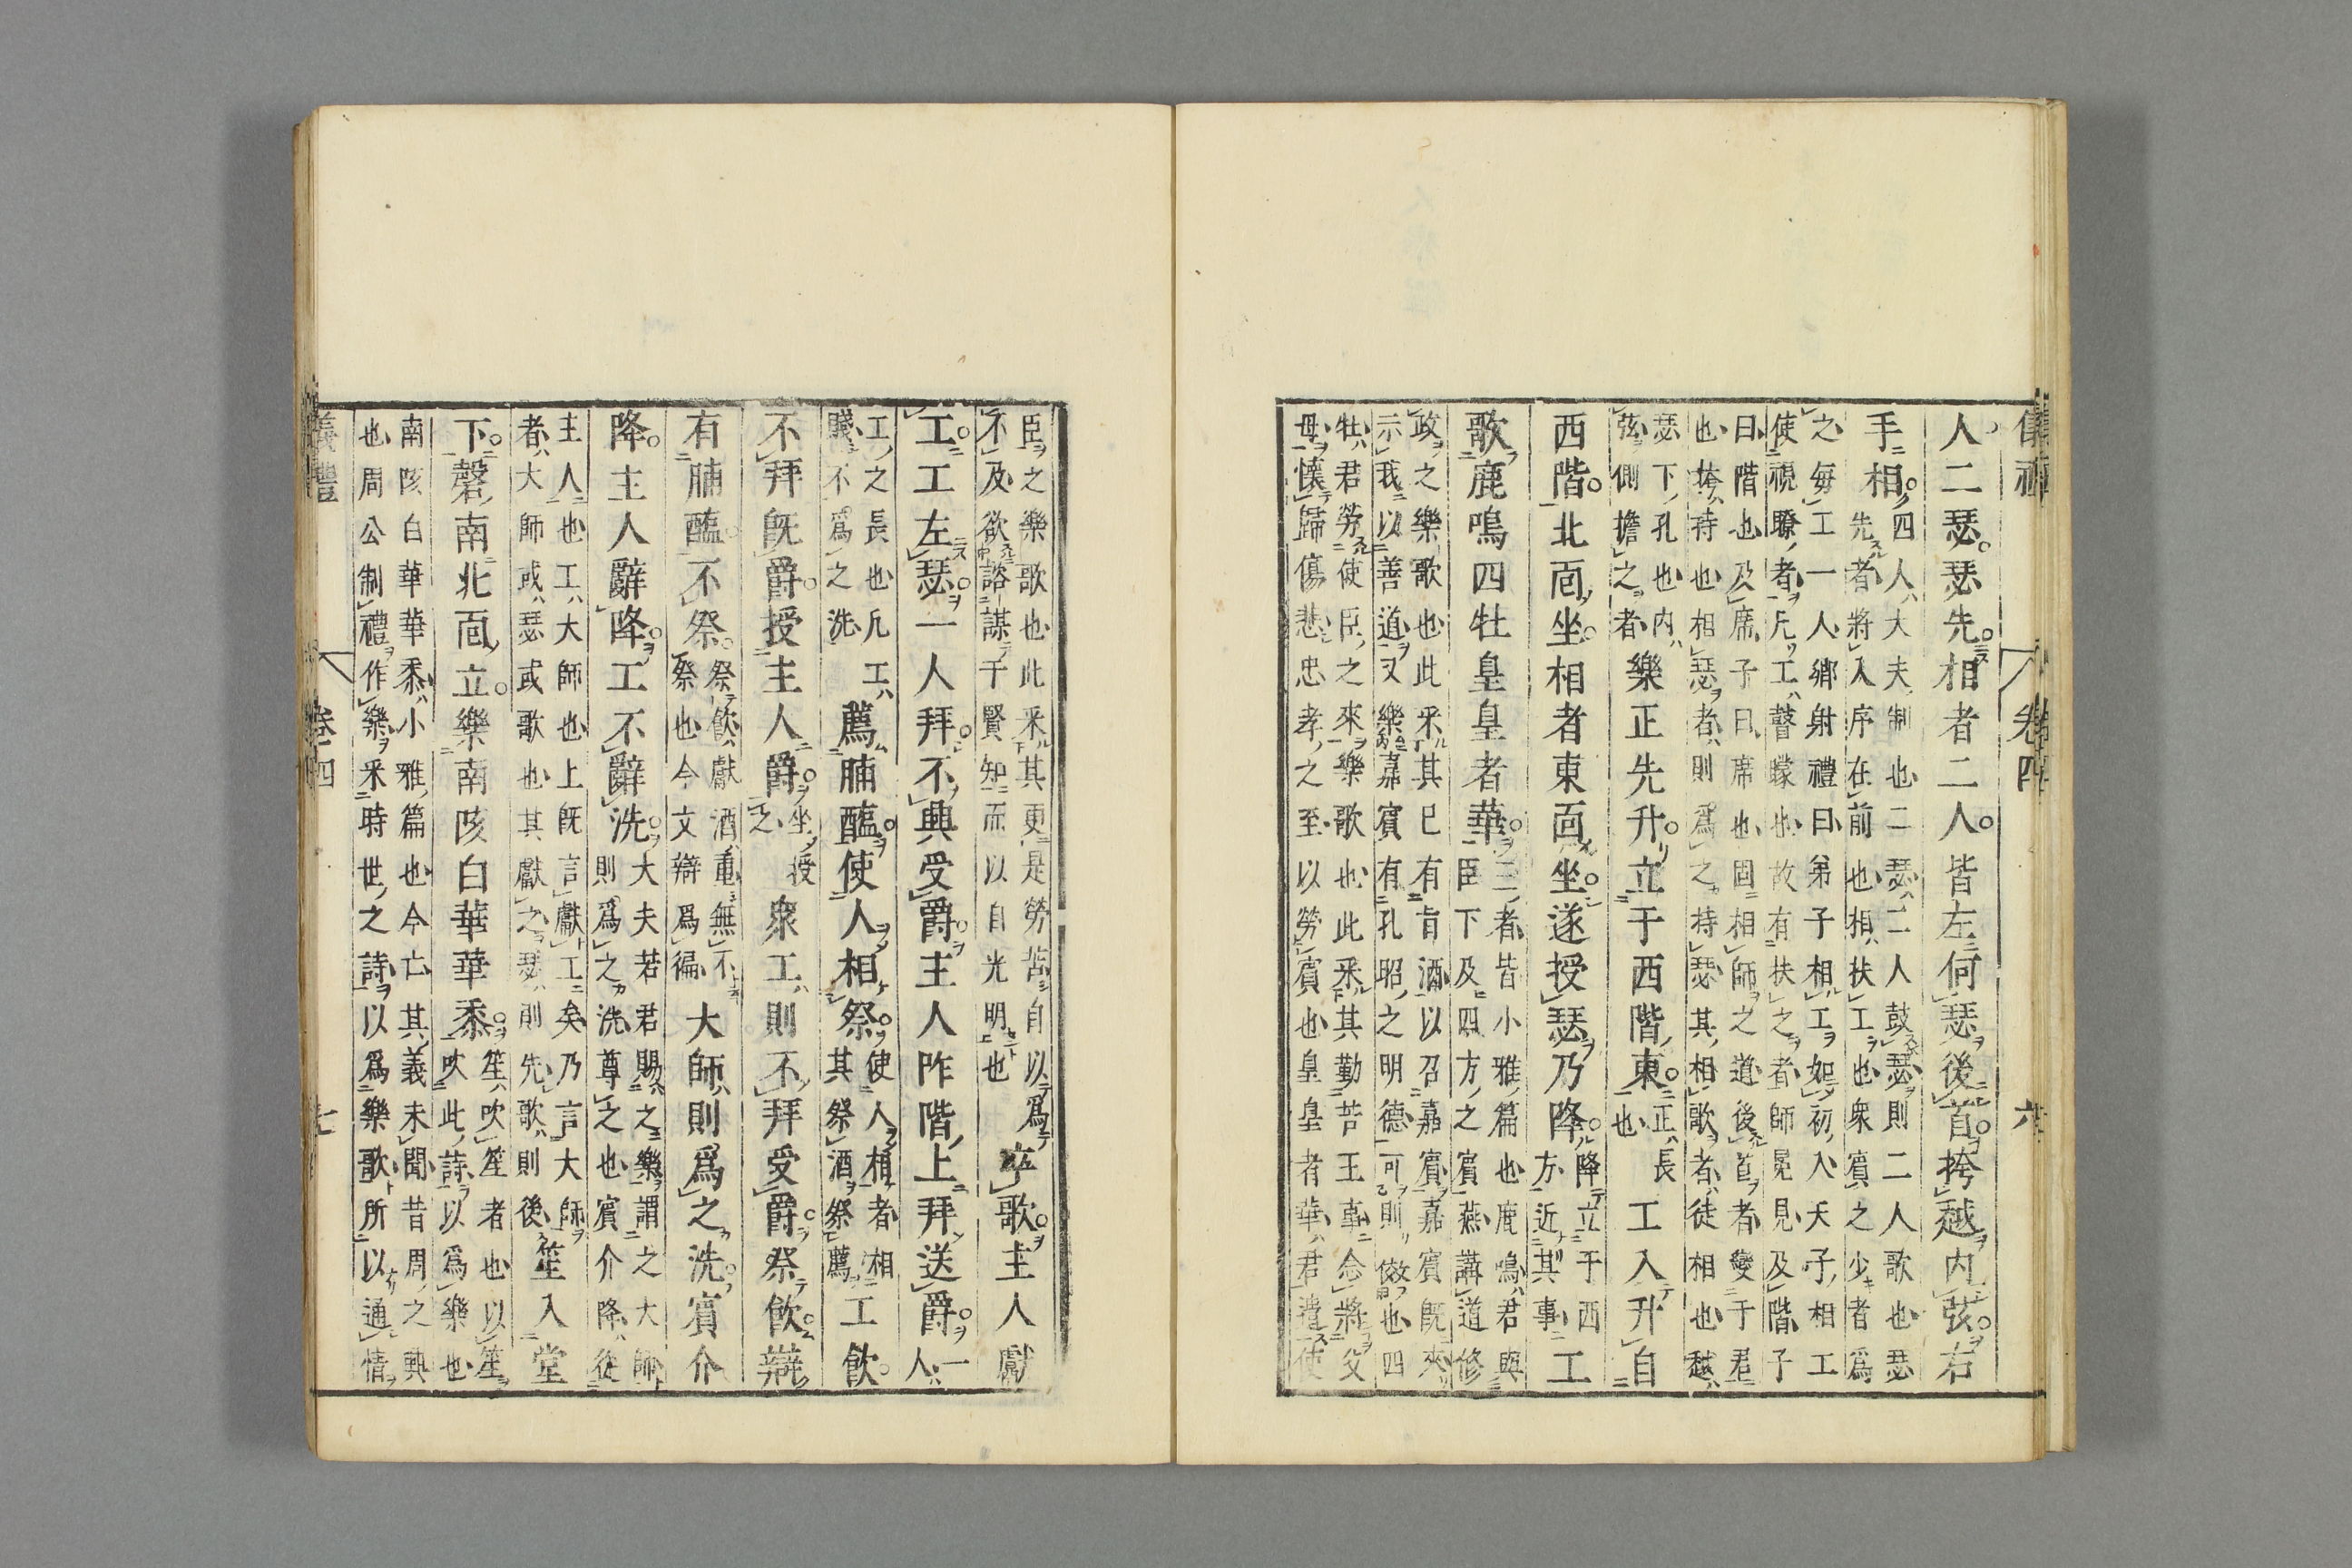 儀禮 卷四 六
人二瑟瑟先相者二人皆左何瑟後首挎越内弦右
手相四人大夫制也二瑟二人鼓瑟則二人歌也瑟
先者將入序在前也相扶工也衆賓之少者爲
之每工一人鄉射禮曰弟子相工如初入天子相工
使視瞭者凡工瞽矇也故有扶之者師冕見及階子
曰階也及席子曰席也固相師之道後首者變于君
也挎持也相瑟者則爲之持瑟其相歌者徒相也越
瑟下孔也内
弦側擔之者樂正先升立于西階東正長也工入升自
西階北面坐相者東面坐遂授瑟乃降降立于西方近其事工
歌鹿鳴四牡皇皇者華三者皆小雅篇也鹿鳴君與
臣下及四方之賓燕講道修
政之樂歌也此采其已有旨酒以召嘉賓嘉賓既來
示我以善道又樂嘉賓有孔昭之明德可則傚也四
牡君勞使臣之來樂歌也此采其勤苦王事念將父
母懷歸傷悲忠孝之至以勞賓也皇皇者華君遣使
臣之樂歌也此采其更是勞苦自以爲
不及欲諮謀于賢知而以自光明也卒歌主人獻
工工左瑟一人拜不興受爵主人阼階上拜送爵一人
工之長也凡工
賤不爲之洗薦脯醢使人相祭使人相者相其祭酒祭薦工飲
不拜既爵授主人爵坐授之衆工則不拜受爵祭飲辯
有脯醢不祭祭飲獻酒重無不
祭也今文辯爲徧大師則爲之洗賓介
降主人辭降工不辭洗大夫若君賜之樂謂之大師
則爲之洗尊之也賓介降從
主人也工大師也上既言獻工矣乃言大師
者大師或瑟或歌也其獻之瑟則先歌則後笙入堂
下磬南北面立樂南陔白華華黍笙吹笙者也以笙
吹此詩以爲樂也
南陔白華華黍小雅篇也今亡其義未聞昔周之興
也周公制禮作樂采時世之詩以爲樂歌所以通情
儀禮 卷四 七